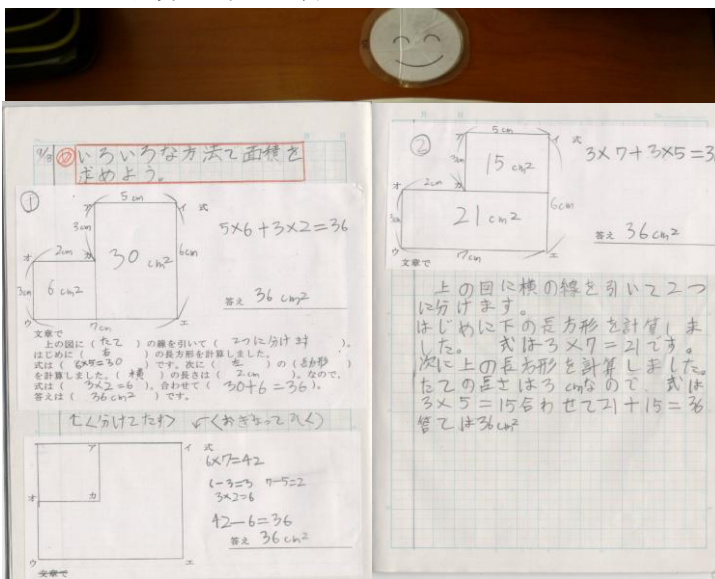 7/3 め いろいろな方法で面積を
求めよう。
①
5cm
ア
イ
式
3cm
5×6+3×2=36
オ
2cm
カ
30 cm2
6cm
3cm
6 cm2
答え 36cm2
ウ
7cm
エ
文章で
上の図に（ たて ）の線を引いて（ 2つに分けます ）。
はじめに（ 右 ）の長方形を計算しました。
式は（ 6×5=30 ）です。次に（ 左 ）の（ 長方形 ）
を計算しました。（ 横 ）の長さは（ 2cm ）。なので、
式は（ 3×2=6 ）。合わせて（ 30+6=36 ）。
答えは（ 36cm2 ）です。
ア
イ
式
6×7=42
6-3=3 7-5=2
3×2=6
オ
カ
42-6=36
答え 36cm2
ウ
エ
文章で
②
5cm
ア
イ
式
3cm
15 cm2
3×7+3×5=3
オ
2cm
カ
6cm
21 cm2
3cm
答え 36cm2
ウ
7cm
エ
文章で
上の図に横の線を引いて2つ
に分けます。
はじめに下の長方形を計算しま
した。式は3×7=21です。
次に上の長方形を計算しました。
たての長さは3cmなので、式は
3×5=15合わせて21+15=36
答ては36cm2